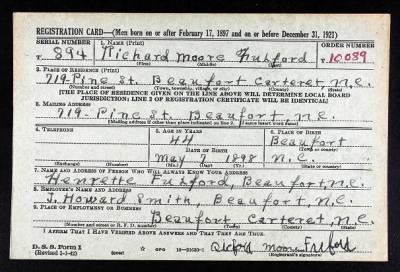 REGISTRATION CARD—(Men born on or after February 17, 1897 and on or before December 31, 1921)
SERIAL NUMBER
1. NAME (Print)
ORDER NUMBER
894
Richard Moore Fulford
10089
(First) (Middle) (Last)
2. PLACE OF RESIDENCE (Print)
719-Pine St. Beaufort Carteret N.C.
(Number and street) (Town, township, village, or city) (County) (State)
[THE PLACE OF RESIDENCE GIVEN ON THE LINE ABOVE WILL DETERMINE LOCAL BOARD
JURISDICTION; LINE 2 OF REGISTRATION CERTIFICATE WILL BE IDENTICAL]
3. MAILING ADDRESS
719-Pine St. Beaufort, N.C.
[Mailing address if other than place indicated on line 2. If same insert word same]
4. TELEPHONE
5. AGE IN YEARS
6. PLACE OF BIRTH
44
Beaufort
DATE OF BIRTH
(Town or county)
May 7 1898
N.C.
(Exchange) (Number)
(Mo.) (Day) (Yr.)
(State or country)
7. NAME AND ADDRESS OF PERSON WHO WILL ALWAYS KNOW YOUR ADDRESS
Henrette Fulford, Beaufort, N.C.
8. EMPLOYER'S NAME AND ADDRESS
J. Howard Smith, Beaufort, N.C.
9. PLACE OF EMPLOYMENT OR BUSINESS
Beaufort, Carteret, N.C.
(Number and street or R. F. D. number) (Town) (County) (State)
I AFFIRM THAT I HAVE VERIFIED ABOVE ANSWERS AND THAT THEY ARE TRUE.
D. S. S. Form 1
(Revised 4-1-42)
(over)
GPO
Moore
(Registrant's signature)